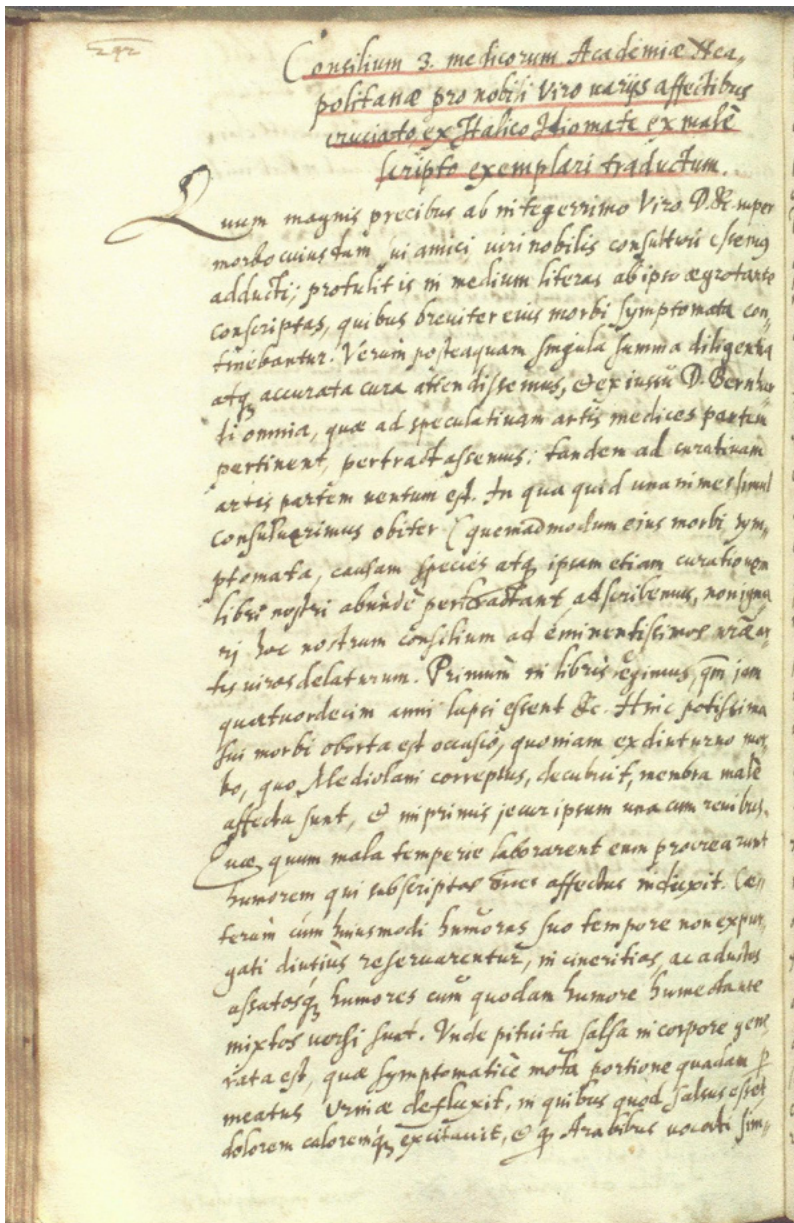 292
Consilium 3. medicorum Academiæ Nea„
politanæ pro nobili Viro uarijs affectibus
cruciato, ex Italico Idiomate ex malè
scripto exemplari traductum.
Quum magnis precibus ab integerrimo Viro D. &c. super
morbo cuiusdam sui amici uiri nobilis consulturi essemus
adducti; protulit is in medium literas ab ipso ægrotante
conscriptas, quibus breuiter eius morbi symptomata con„
tinebantur. Verùm posteaquam singula summa diligentia
atq; accurata cura attendissemus, & ex iussu D. Bernhar„
di omnia, quæ ad speculatiuam artis medices partem
pertinent, pertractassemus: tandem ad curatiuam
artis partem uentum est. In qua quid unanimes simul
consuluerimus obiter (quemadmodum eius morbi sym„
ptomata, causam species atq; ipsam etiam curationem
libri nostri abundè pertractant adscribemus, non igna
rj hoc nostrum consilium ad eminentissimos uræ ar„
tis uiros delaturum. Primùm in libris legimus, qm̄ jam
quatuordecim anni lapsi essent &c. Hinc potissima
sui morbi oborta est occasio, quoniam ex diuturno mor
bo, quo Mediolani correptus, decubuit, membra malè
affecta sunt, & inprimis jecur ipsum una cum renibus.
Quæ, quum mala temperie laborarent eum procrearunt
humorem qui subscriptos omnes affectus induxit. Cæ„
terùm cùm huiusmodi humores suo tempore non expur„
gati diutiùs reseruarentur, in cineritios, ac adustos
assatosq; humores cum quodam humore humectante
mixtos uersi sunt. Vnde pituita salsa in corpore gene
rata est, quæ symptomaticè mota portione quadam p
meatus Vrinæ defluxit, in quibus quòd salsus esset
dolorem caloremq; excitauit, & q; Arabibus uocati sim„